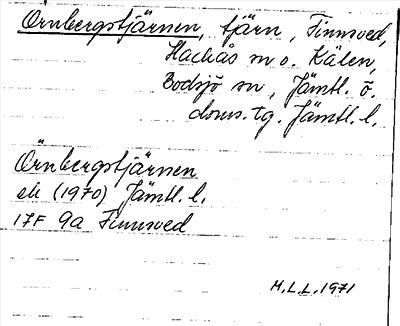 Örnbergstjärnen, tjärn, Finnsved,
Hackås sn o. Kälen,
Bodsjö sn, Jämtl. ö.
doms. tg. Jämtl. l.
Örnbergstjärnen
ek (1970) Jämtl. l.
17F 9a Finnsved
H.L.L. 1971